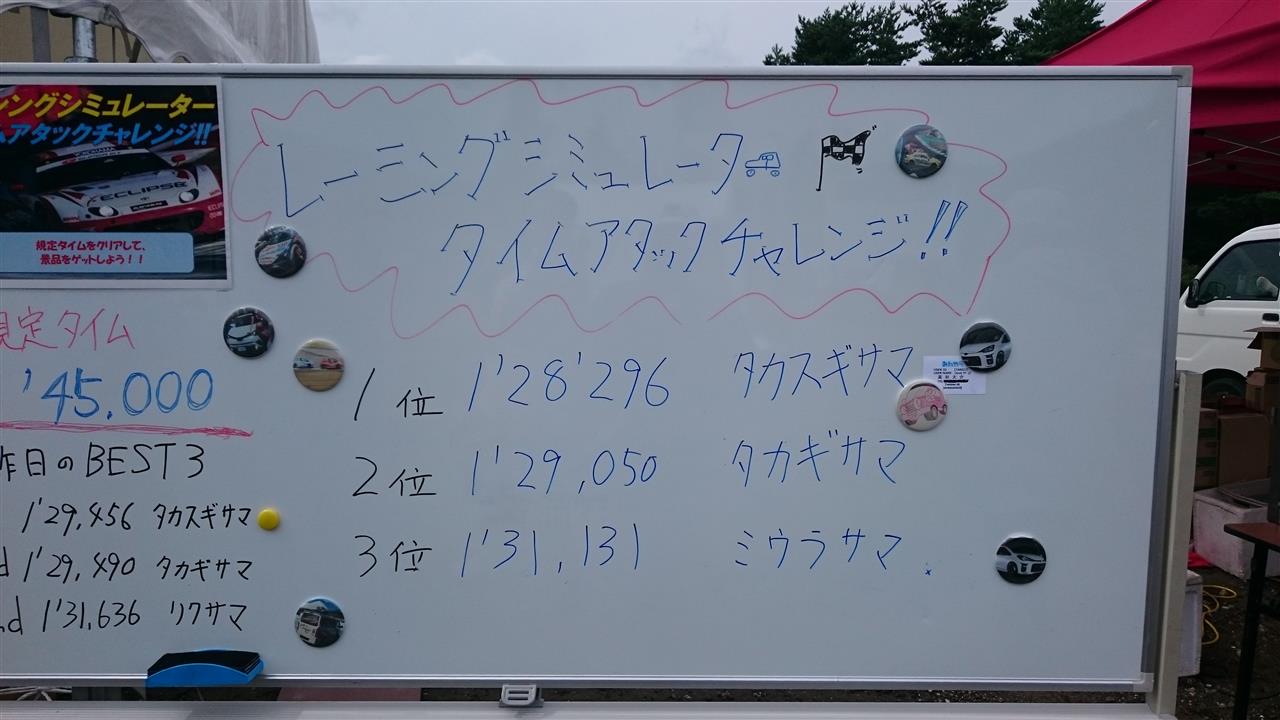 レーシングシミュレーター
タイムアタックチャレンジ!!
ECLIPSE
規定タイムをクリアして、
景品をゲットしよう！！
レーシングシミュレータ
タイムアタックチャレンジ!!
規定タイム
'45.000
昨日のBEST3
1'29,456 タカスギサマ
d 1'29,490 タカギサマ
nd 1'31,636 リクサマ
1位 1'28'296 タカスギサマ
2位 1'29,050 タカギサマ
3位 1'31,131 ミウラサマ.